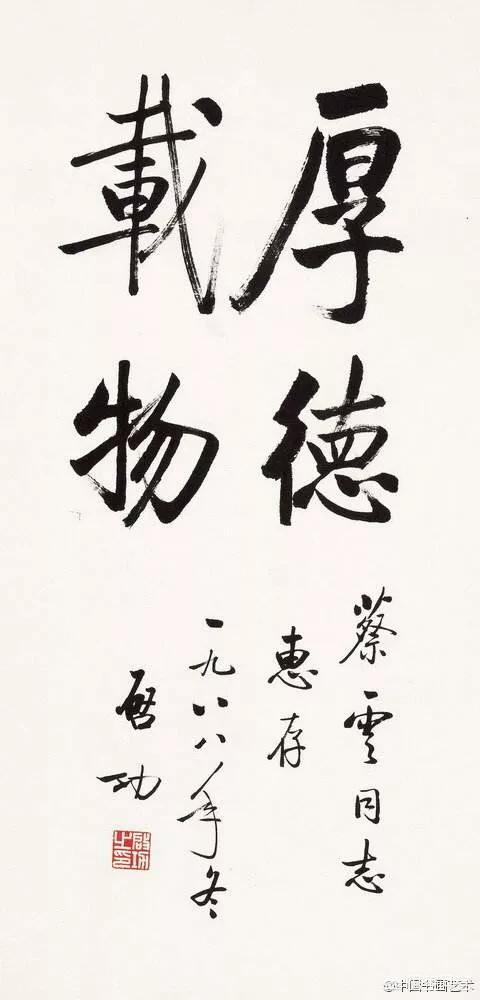 厚德
載物
蔡雲同志
惠存
一九八八年冬
啓功
啟功之印
@中国书画艺术